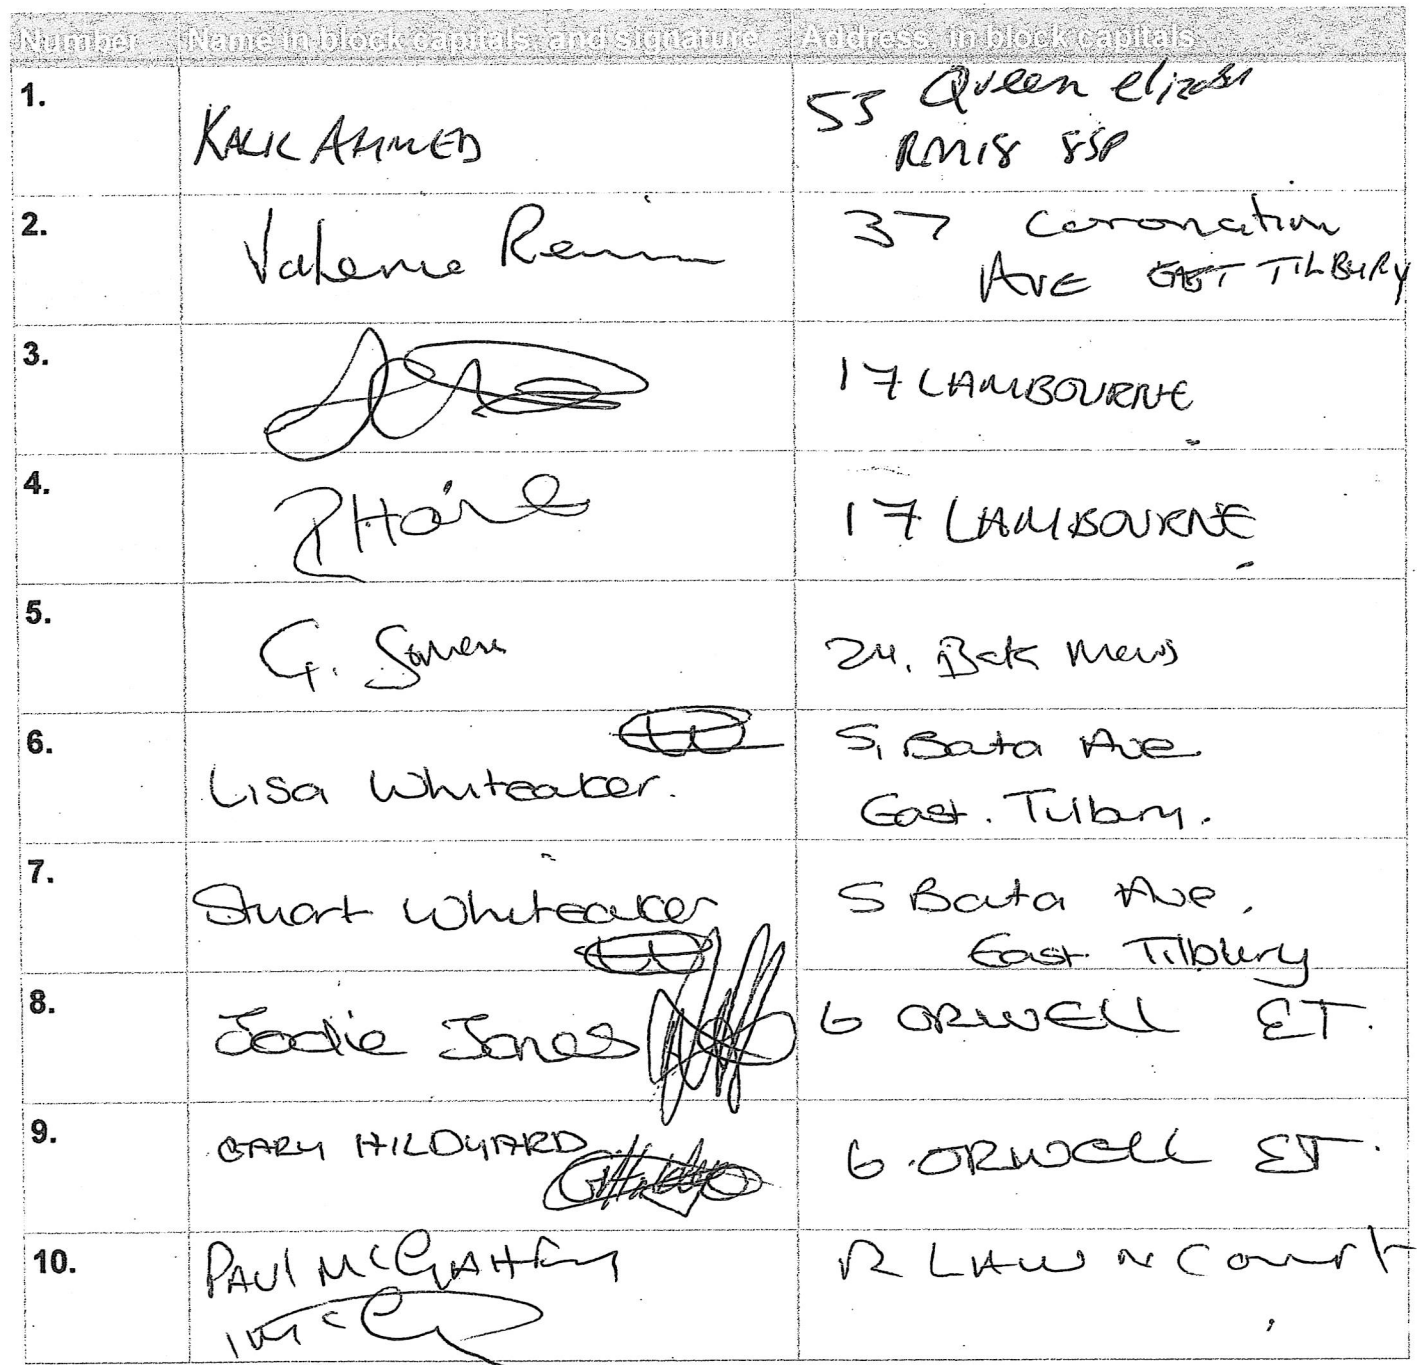 Number Name in block capitals, and signature Address in block capitals
1.
KALIC AHMED
53 Queen
RM18 8SP
2.
Valerie
37 Coronation
AVE EAST TILBURY
3.
17 LAMBOURNE
4.
17 LAMBOURNE
5.
G.
24. Mews
6.
Lisa Whiteaker.
5, Bata Ave
East. Tilbury.
7.
Stuart Whiteaker
5 Bata Ave,
East Tilbury
8.
Jodie Jones
6 ORWELL ET.
9.
GARY HILDYARD
6 ORWELL ET.
10.
PAUL
LAWN Court